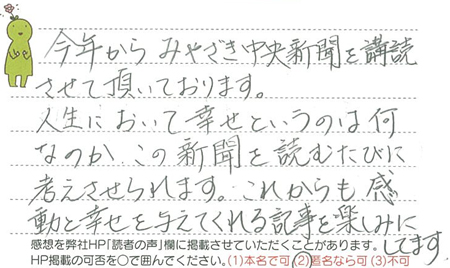 今年から みやざき中央新聞を講読
させて頂いております。
人生において幸せというのは何
なのか この新聞を読むたびに
考えさせられます。これからも感
動と幸せを与えてくれる記事を楽しみに
してます。
感想を弊社HP「読者の声」欄に掲載させていただくことがあります。
HP掲載の可否を○で囲んでください。(1)本名で可 (2)匿名なら可 (3)不可